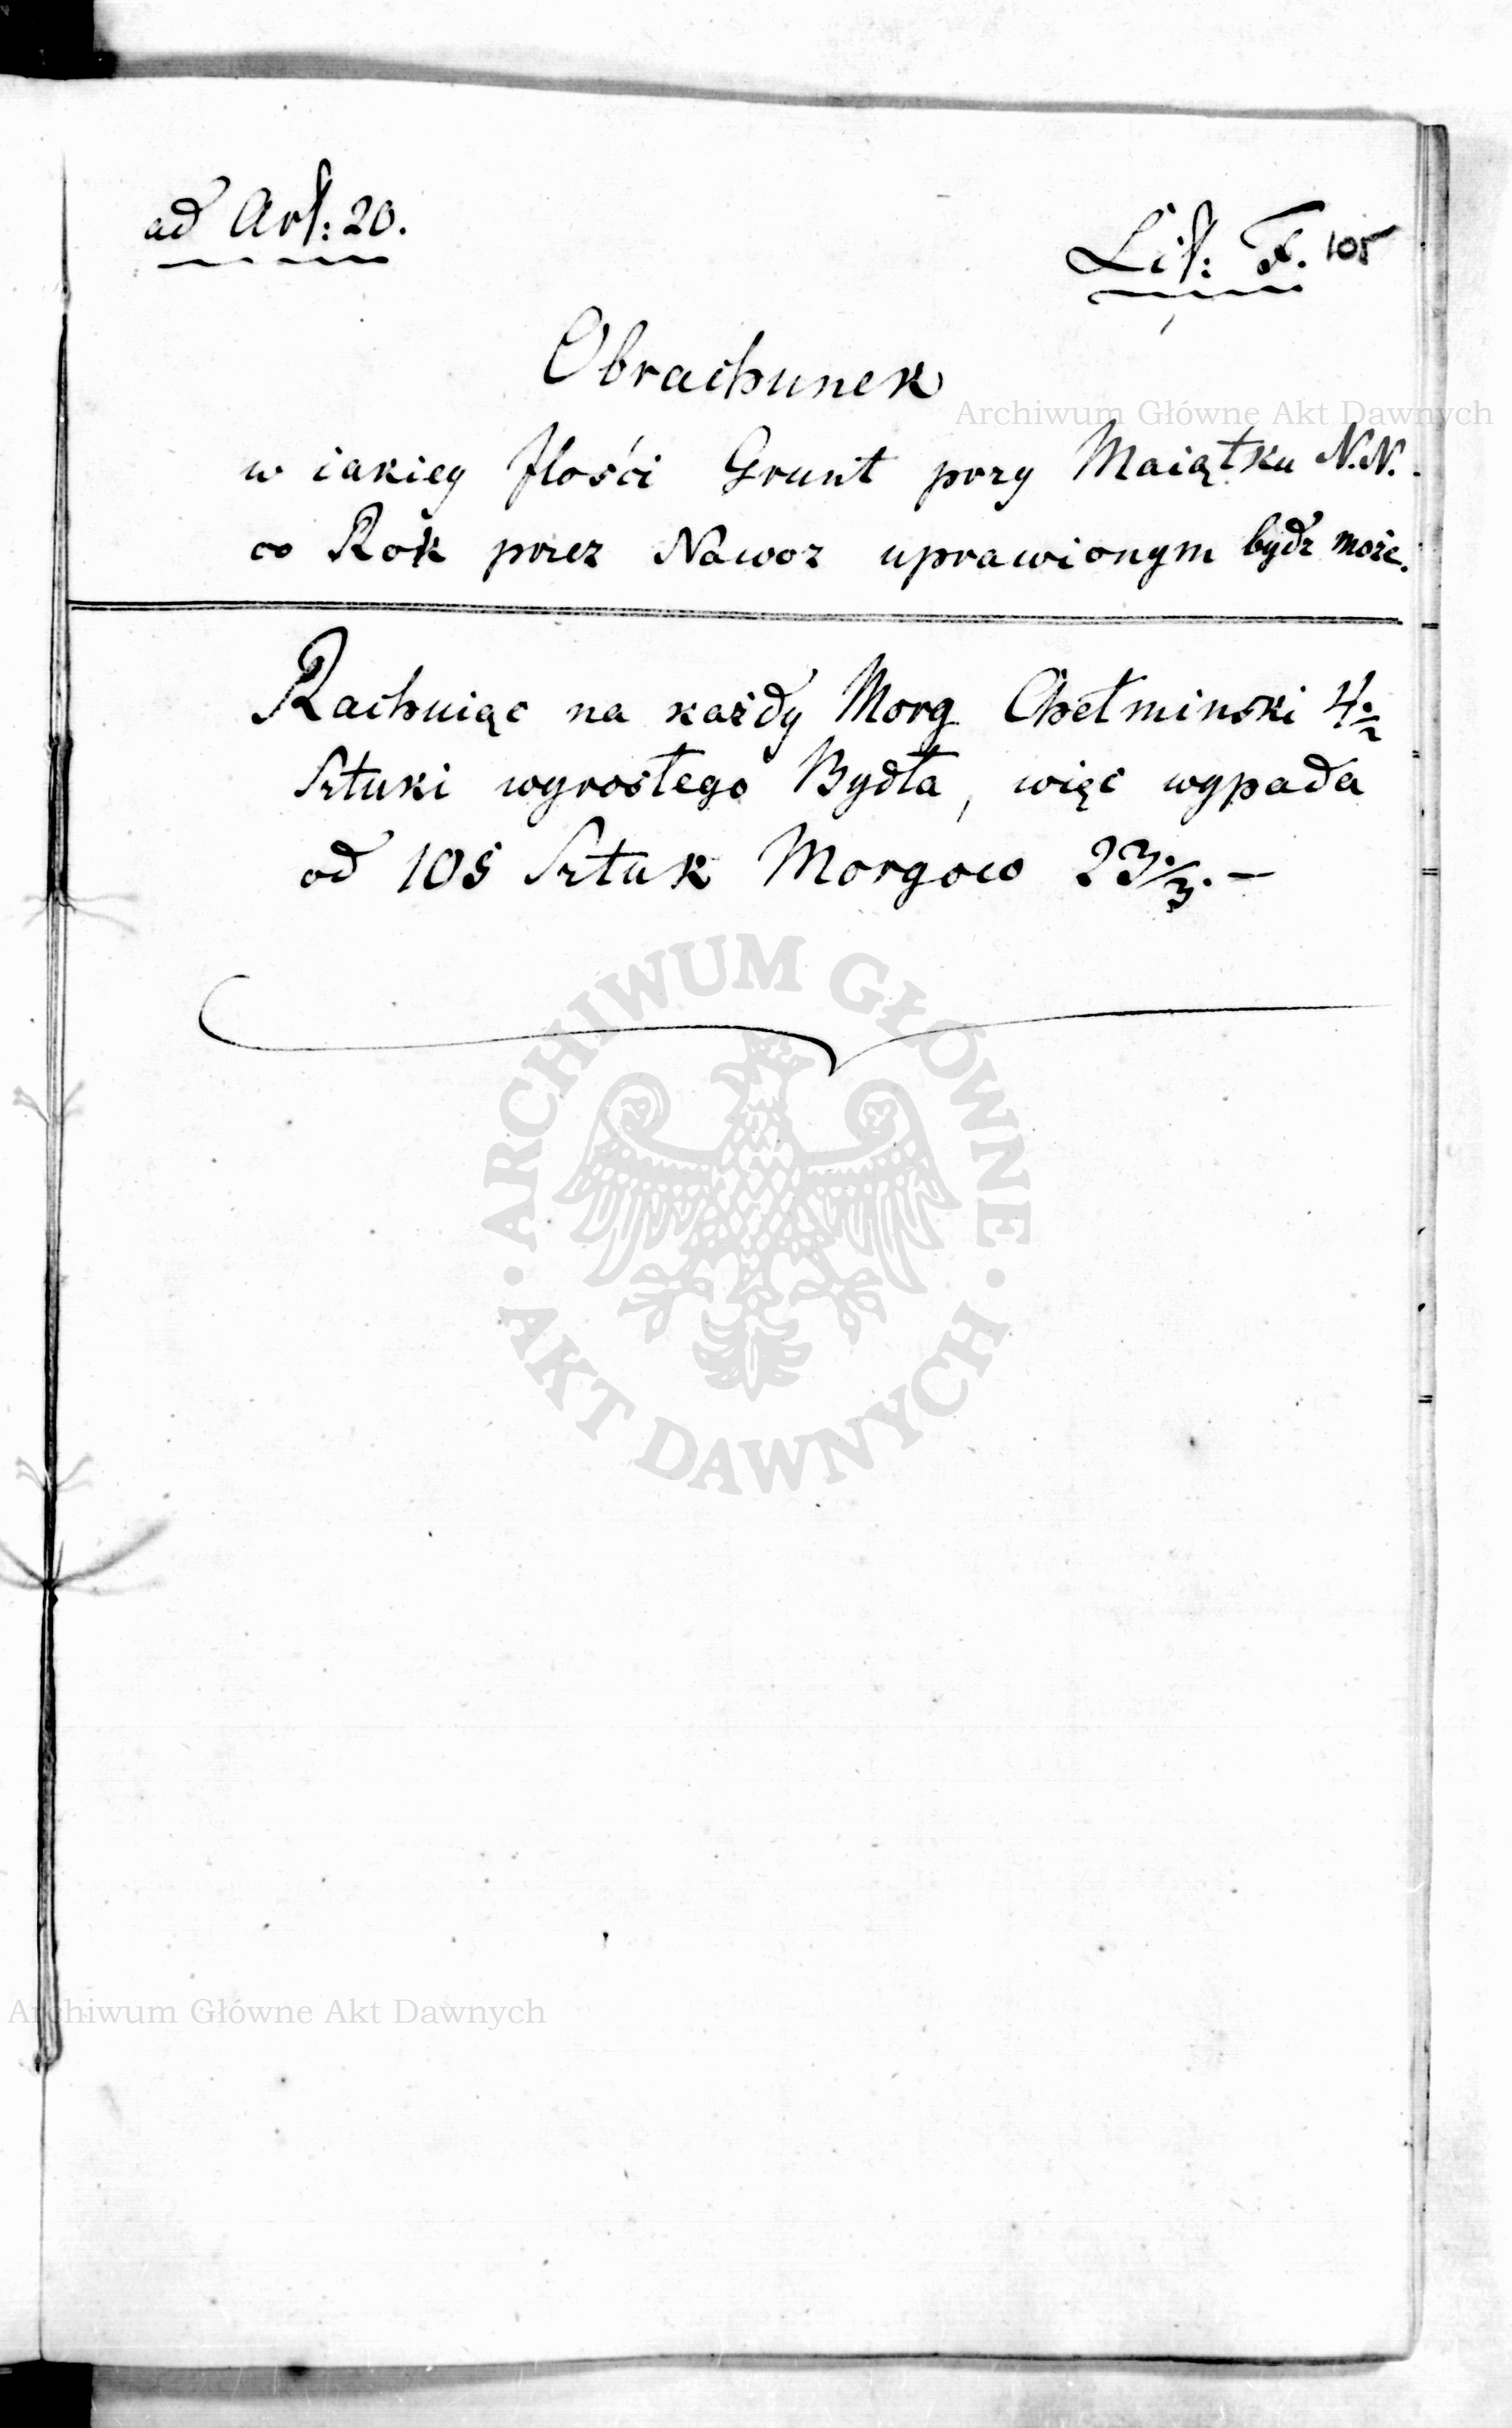 ad Art: 20.
Lit: F. 105
Obrachunek
Archiwum Główne Akt Dawnych
w iakiey Ilości Grunt przy Maiątku N.N.
co Rok przez Nawoz uprawionym bydź może.
Rachuiąc na każdy Morg Chełminski 4½
Sztuki wyrosłego Bydła, więc wypada
od 105 Sztuk Morgow 23⅓. —
ARCHIWUM GŁÓWNE
AKT DAWNYCH
Archiwum Główne Akt Dawnych